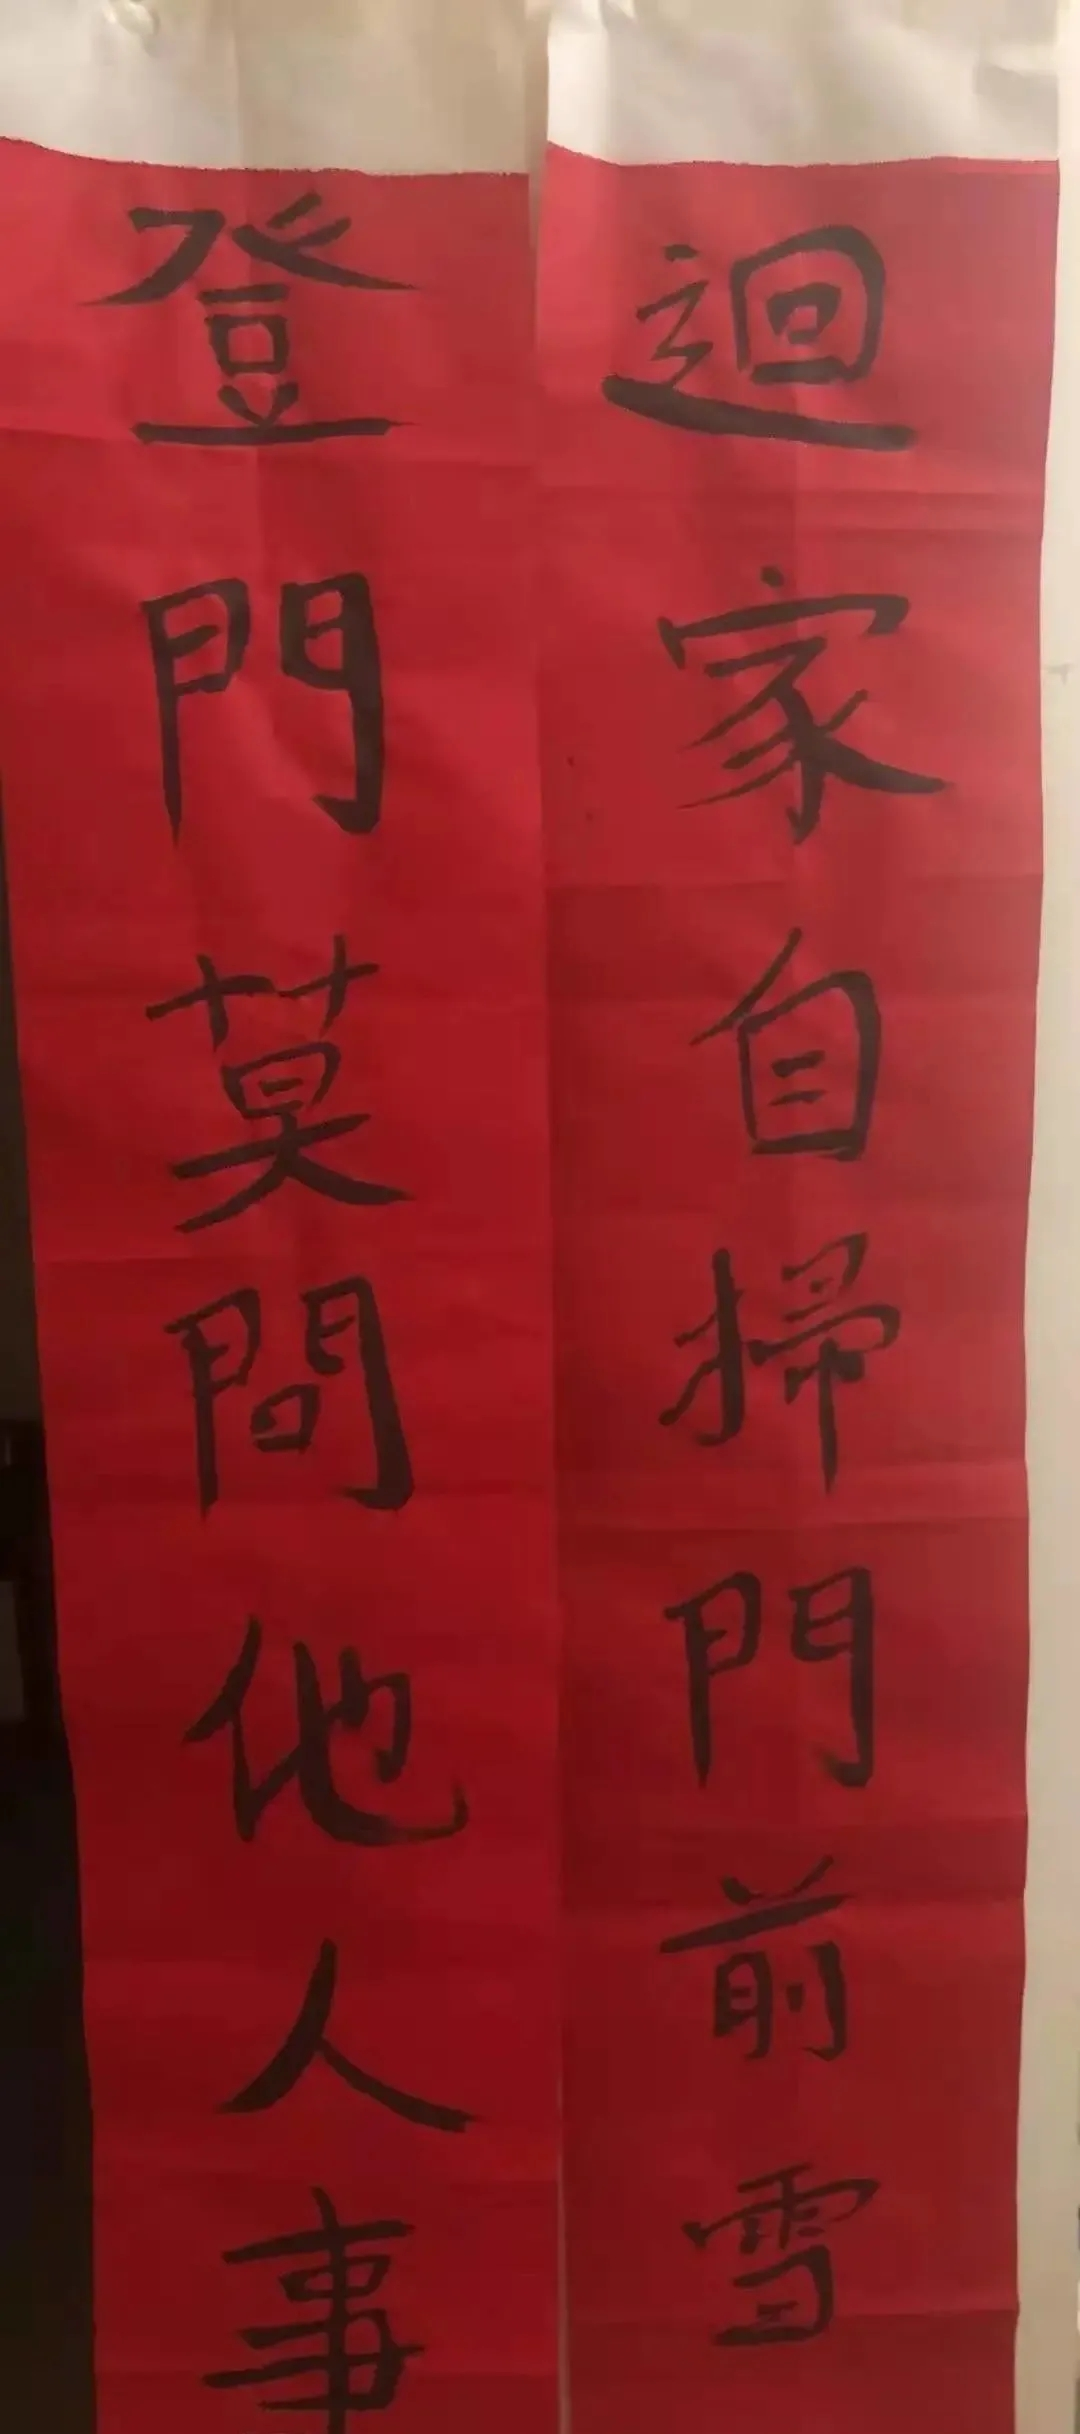 迴家自掃門前雪
登門莫問他人事